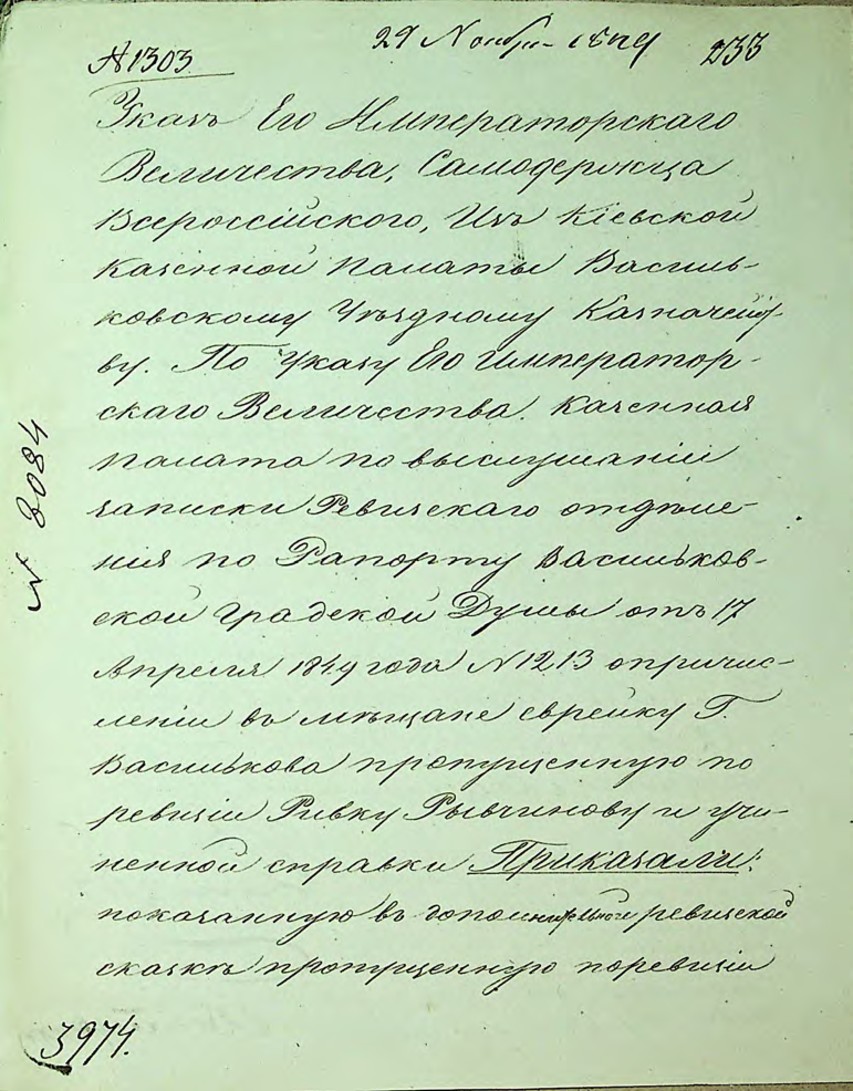 29 Ноябр. 1849 233
№ 1303
Указъ Его Императорскаго
Величества, Самодержца
Всероссійскаго, Изъ Кіевской
Казенной Палаты Василь-
ковскому Уѣздному Казначейст-
ву. По Указу Его Император-
скаго Величества. Казенная
палата по выслушаніи
записки Ревизскаго отдѣле-
нія по Рапорту Васильков-
ской Градской Думы отъ 17
Апреля 1849 года № 1213 о причис-
леніи въ мѣщане еврейку Г.
Василькова пропущенную по
ревизіи Ривку Рывчинову и учи-
ненной справки Приказали:
показанную въ дополнительной ревизской
сказкѣ пропущенную по ревизіи
3974.